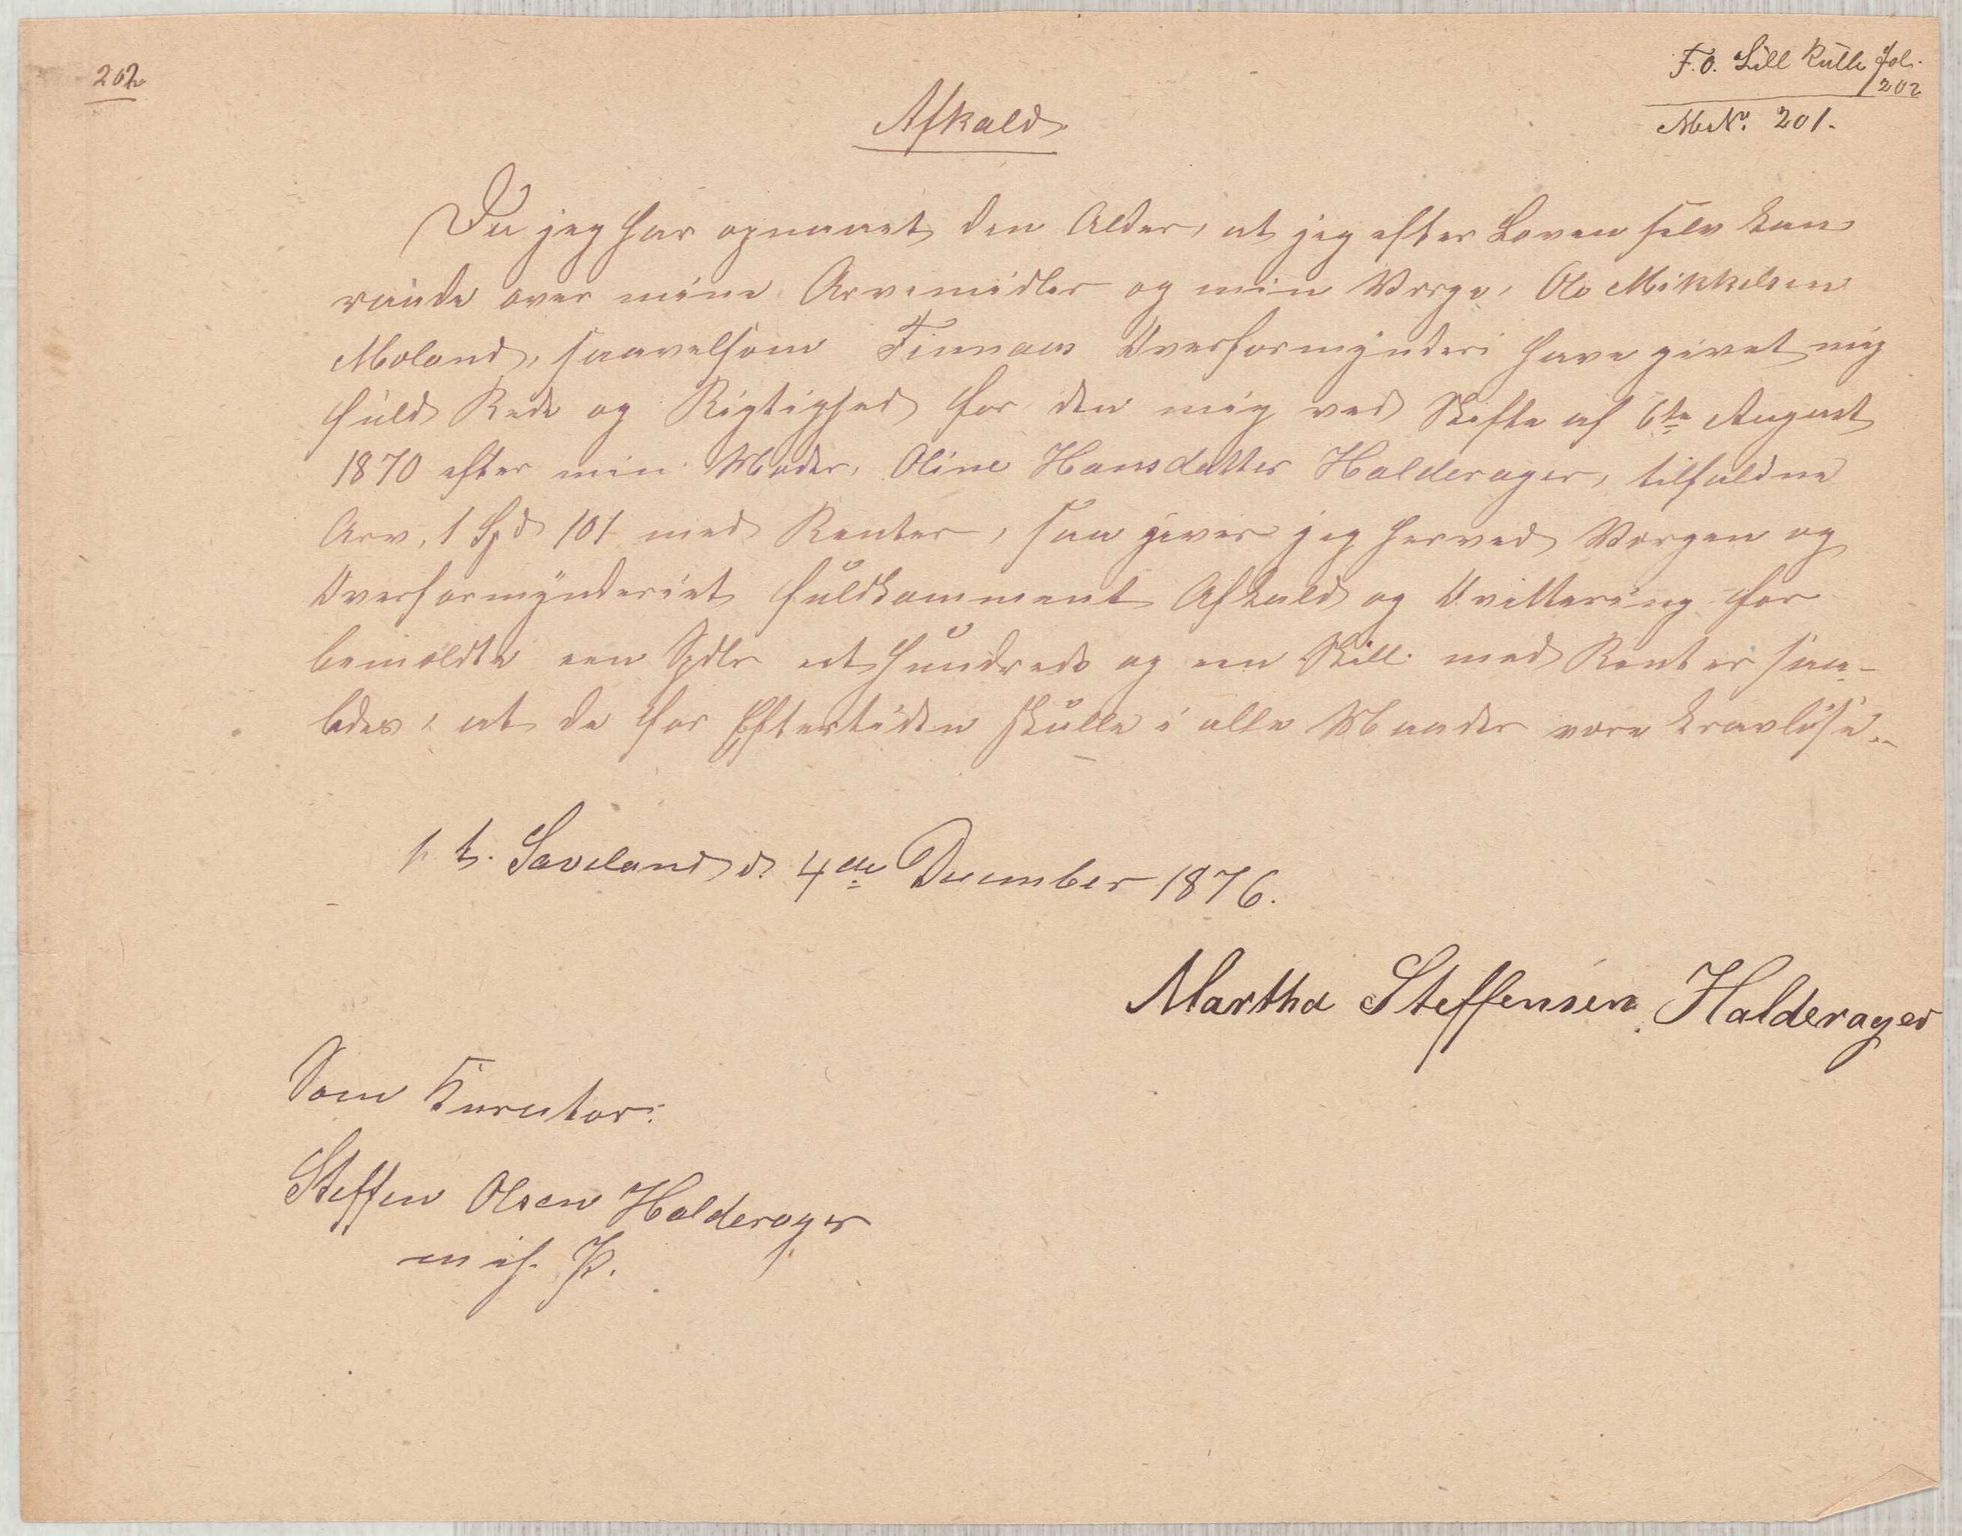 202
F. O. Lill Rulle fol.
202
MNr. 201.
Afkald
Da jeg har opnaaet den Alder, at jeg efter Loven selv kan
raade over mine Arvemidler og min Værge, Ole Mikkelsen
Moland, saavelsom Finnaas Overformynderi have givet mig
fuld Rede og Rigtighed for den mig ved Skifte af 6te August
1870 efter min Moder, Oline Hansdatter Halderager, tilfaldne
Arv, 1 Spd 101 med Renter, saa giver jeg herved Værgen og
Overformynderiet fuldkomment Afkald og Qvittering for
bemældte een Spdlr et hundrede og een Skill. med Renter saa-
ledes, at de for Eftertiden skulle i alle Maader være kravløse.-
p. t. Saveland d. 4de December 1876.
Martha Steffensen Halderager
Som Kurator:
Steffen Olsen Halderager
m. i f. P.